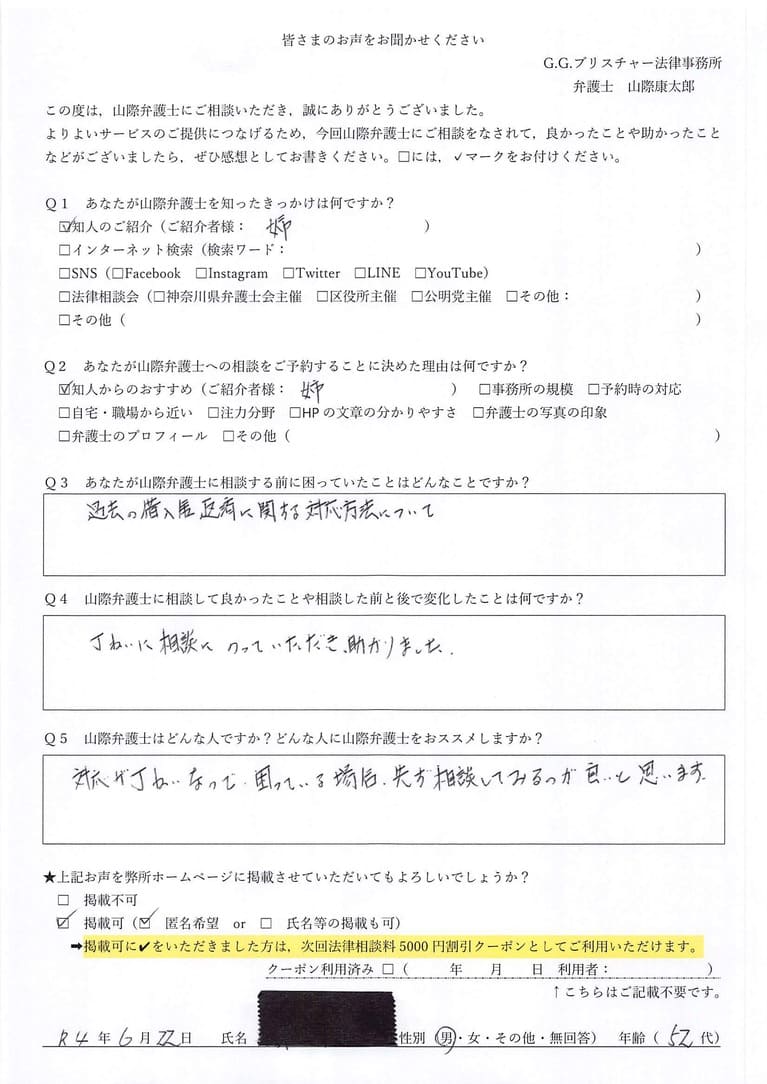 皆さまのお声をお聞かせください
G.G.ブリスチャー法律事務所
弁護士　山際康太郎
この度は，山際弁護士にご相談いただき，誠にありがとうございました。
よりよいサービスのご提供につなげるため，今回山際弁護士にご相談をなされて，良かったことや助かったこと
などがございましたら，ぜひ感想としてお書きください。□には，✓マークをお付けください。
Q１　あなたが山際弁護士を知ったきっかけは何ですか？
☑知人のご紹介（ご紹介者様：　姉　）
□インターネット検索（検索ワード：　）
□SNS（□Facebook　□Instagram　□Twitter　□LINE　□YouTube）
□法律相談会（□神奈川県弁護士会主催　□区役所主催　□公明党主催　□その他：　）
□その他（　）
Q２　あなたが山際弁護士への相談をご予約することに決めた理由は何ですか？
☑知人からのおすすめ（ご紹介者様：　姉　）　□事務所の規模　□予約時の対応
□自宅・職場から近い　□注力分野　□HPの文章の分かりやすさ　□弁護士の写真の印象
□弁護士のプロフィール　□その他（　）
Q３　あなたが山際弁護士に相談する前に困っていたことはどんなことですか？
過去の借入金返済に関する対応方法について
Q４　山際弁護士に相談して良かったことや相談した前と後で変化したことは何ですか？
丁ねいに相談にのっていただき、助かりました.
Q５　山際弁護士はどんな人ですか？どんな人に山際弁護士をおススメしますか？
対応が丁ねいなので、困っている場合、先ず相談してみるのが良いと思います.
★上記お声を弊所ホームページに掲載させていただいてもよろしいでしょうか？
□　掲載不可
☑　掲載可（☑　匿名希望　or　□　氏名等の掲載も可）
➡掲載可に✔をいただきました方は，次回法律相談料5000円割引クーポンとしてご利用いただけます。
クーポン利用済み　□（　年　月　日　利用者：　）
↑こちらはご記載不要です。
R4年6月22日　氏名　性別（男・女・その他・無回答）　年齢（52代）